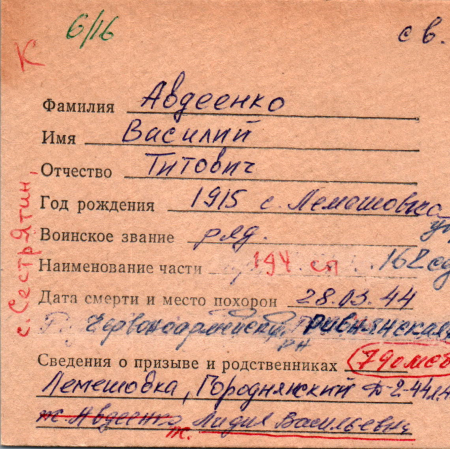 К
6/16
с в.
Фамилия Авдеенко
Имя Василий
Отчество Титович
Год рождения 1915 с. Лемешовка
Воинское звание ряд.
Наименование части 194 сп 162 сд
Дата смерти и место похорон 28.03.44
Червоноармейский Ривнянская
рн
Сведения о призыве и родственниках
Лемешовка, Городнянский
ж. Авдеенко, Лидия Васильевна
ж.
с. Сестрятин,